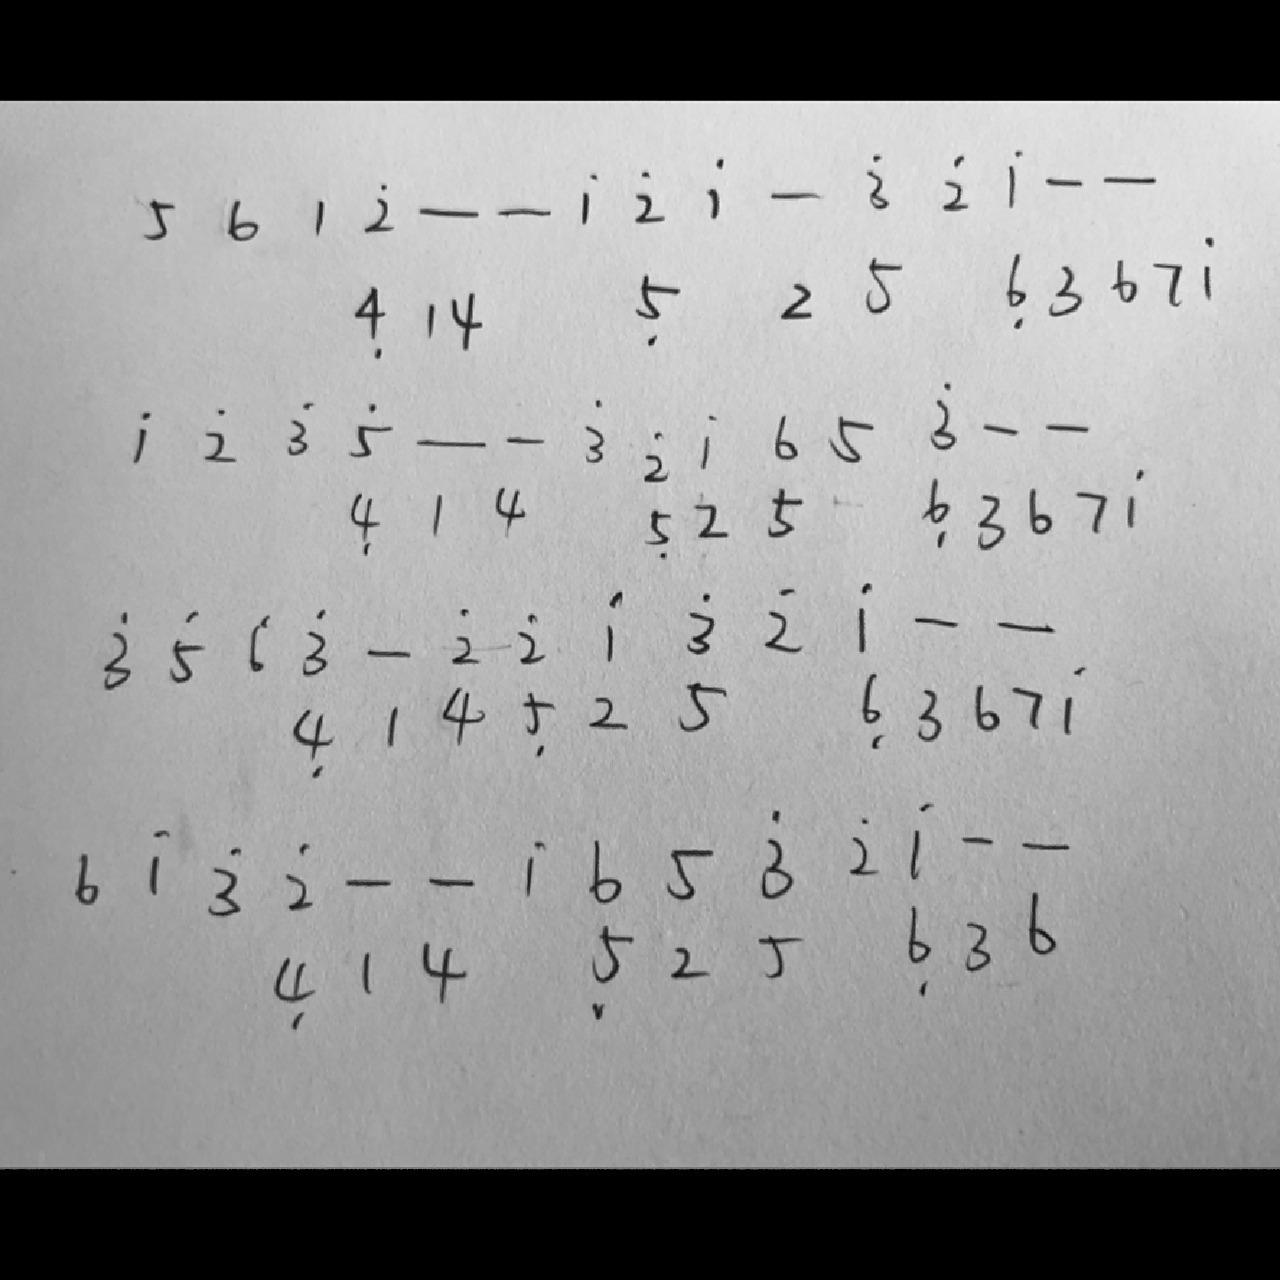 5 6 1 2̇ — — 1̇ 2̇ 1̇ — 3̇ 2̇ 1̇ — —
4̣ 1 4 5̣ 2 5 6̣ 3 6 7 1̇
1̇ 2̇ 3̇ 5̇ — — 3̇ 2̇ 1̇ 6 5 3̇ — —
4̣ 1 4 5̣ 2 5 6̣ 3 6 7 1̇
3̇ 5̇ 6̇ 3̇ — 2̇ 2̇ 1̇ 3̇ 2̇ 1̇ — —
4̣ 1 4 5̣ 2 5 6̣ 3 6 7 1̇
6 1̇ 3̇ 2̇ — — 1̇ 6 5 3̇ 2̇ 1̇ — —
4̣ 1 4 5̣ 2 5 6̣ 3 6